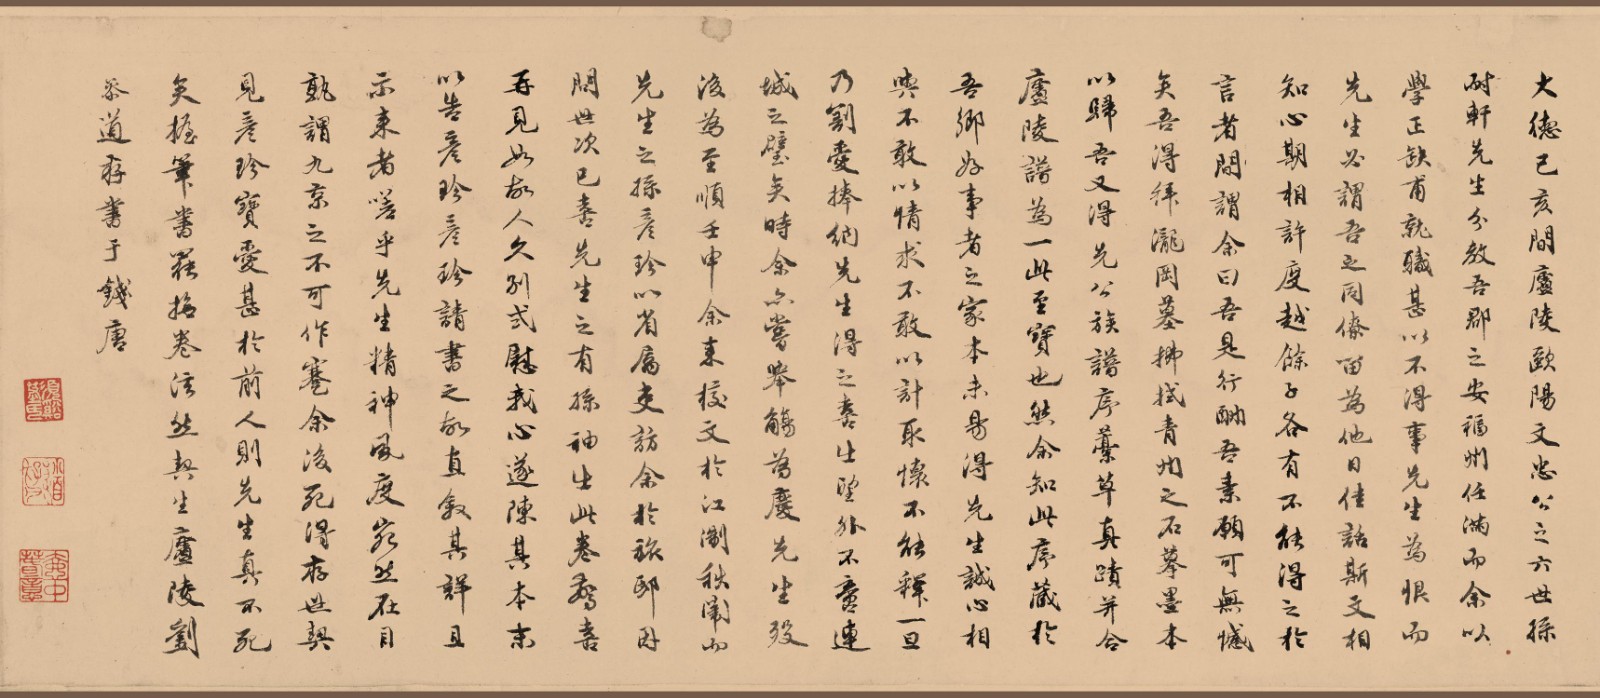 大德己亥間廬陵歐陽文忠公之六世孫
耐軒先生分教吾郡之安福州任滿而余以
學正缺甫就職甚以不得事先生為恨而
先生亦謂吾之同僚留為他日佳話斯文相
知心期相許度越餘子各有不能得之於
言者間謂余曰吾是行酬吾素願可無憾
矣吾得拜瀧岡墓拂拭青州之石摹墨本
以歸吾又得先公族譜序藁草真蹟并合
廬陵譜為一此至寶也然余知此序藏於
吾鄉好事者之家本未易得先生誠心相
與不敢以情求不敢以計取懷不能釋一旦
乃割愛捧納先生得之喜出望外不啻連
城之璧矣時余亦嘗舉觴為慶先生歿
後為至順壬申余來校文於江淛秩闈而
先生之孫彥珍以省屬吏訪余於旅邸因
問世次已喜先生之有孫袖出此卷驚喜
再見如故人久別式慰我心遂陳其本末
以告彥珍彥珍請書之故直敘其詳且
示來者嗟乎先生精神風度宛然在目
孰謂九京之不可作蹇余後死得存世契
見彥珍寶愛甚於前人則先生真不死
矣握筆書罷撫卷泫然契生廬陵劉
岳道存書于錢唐